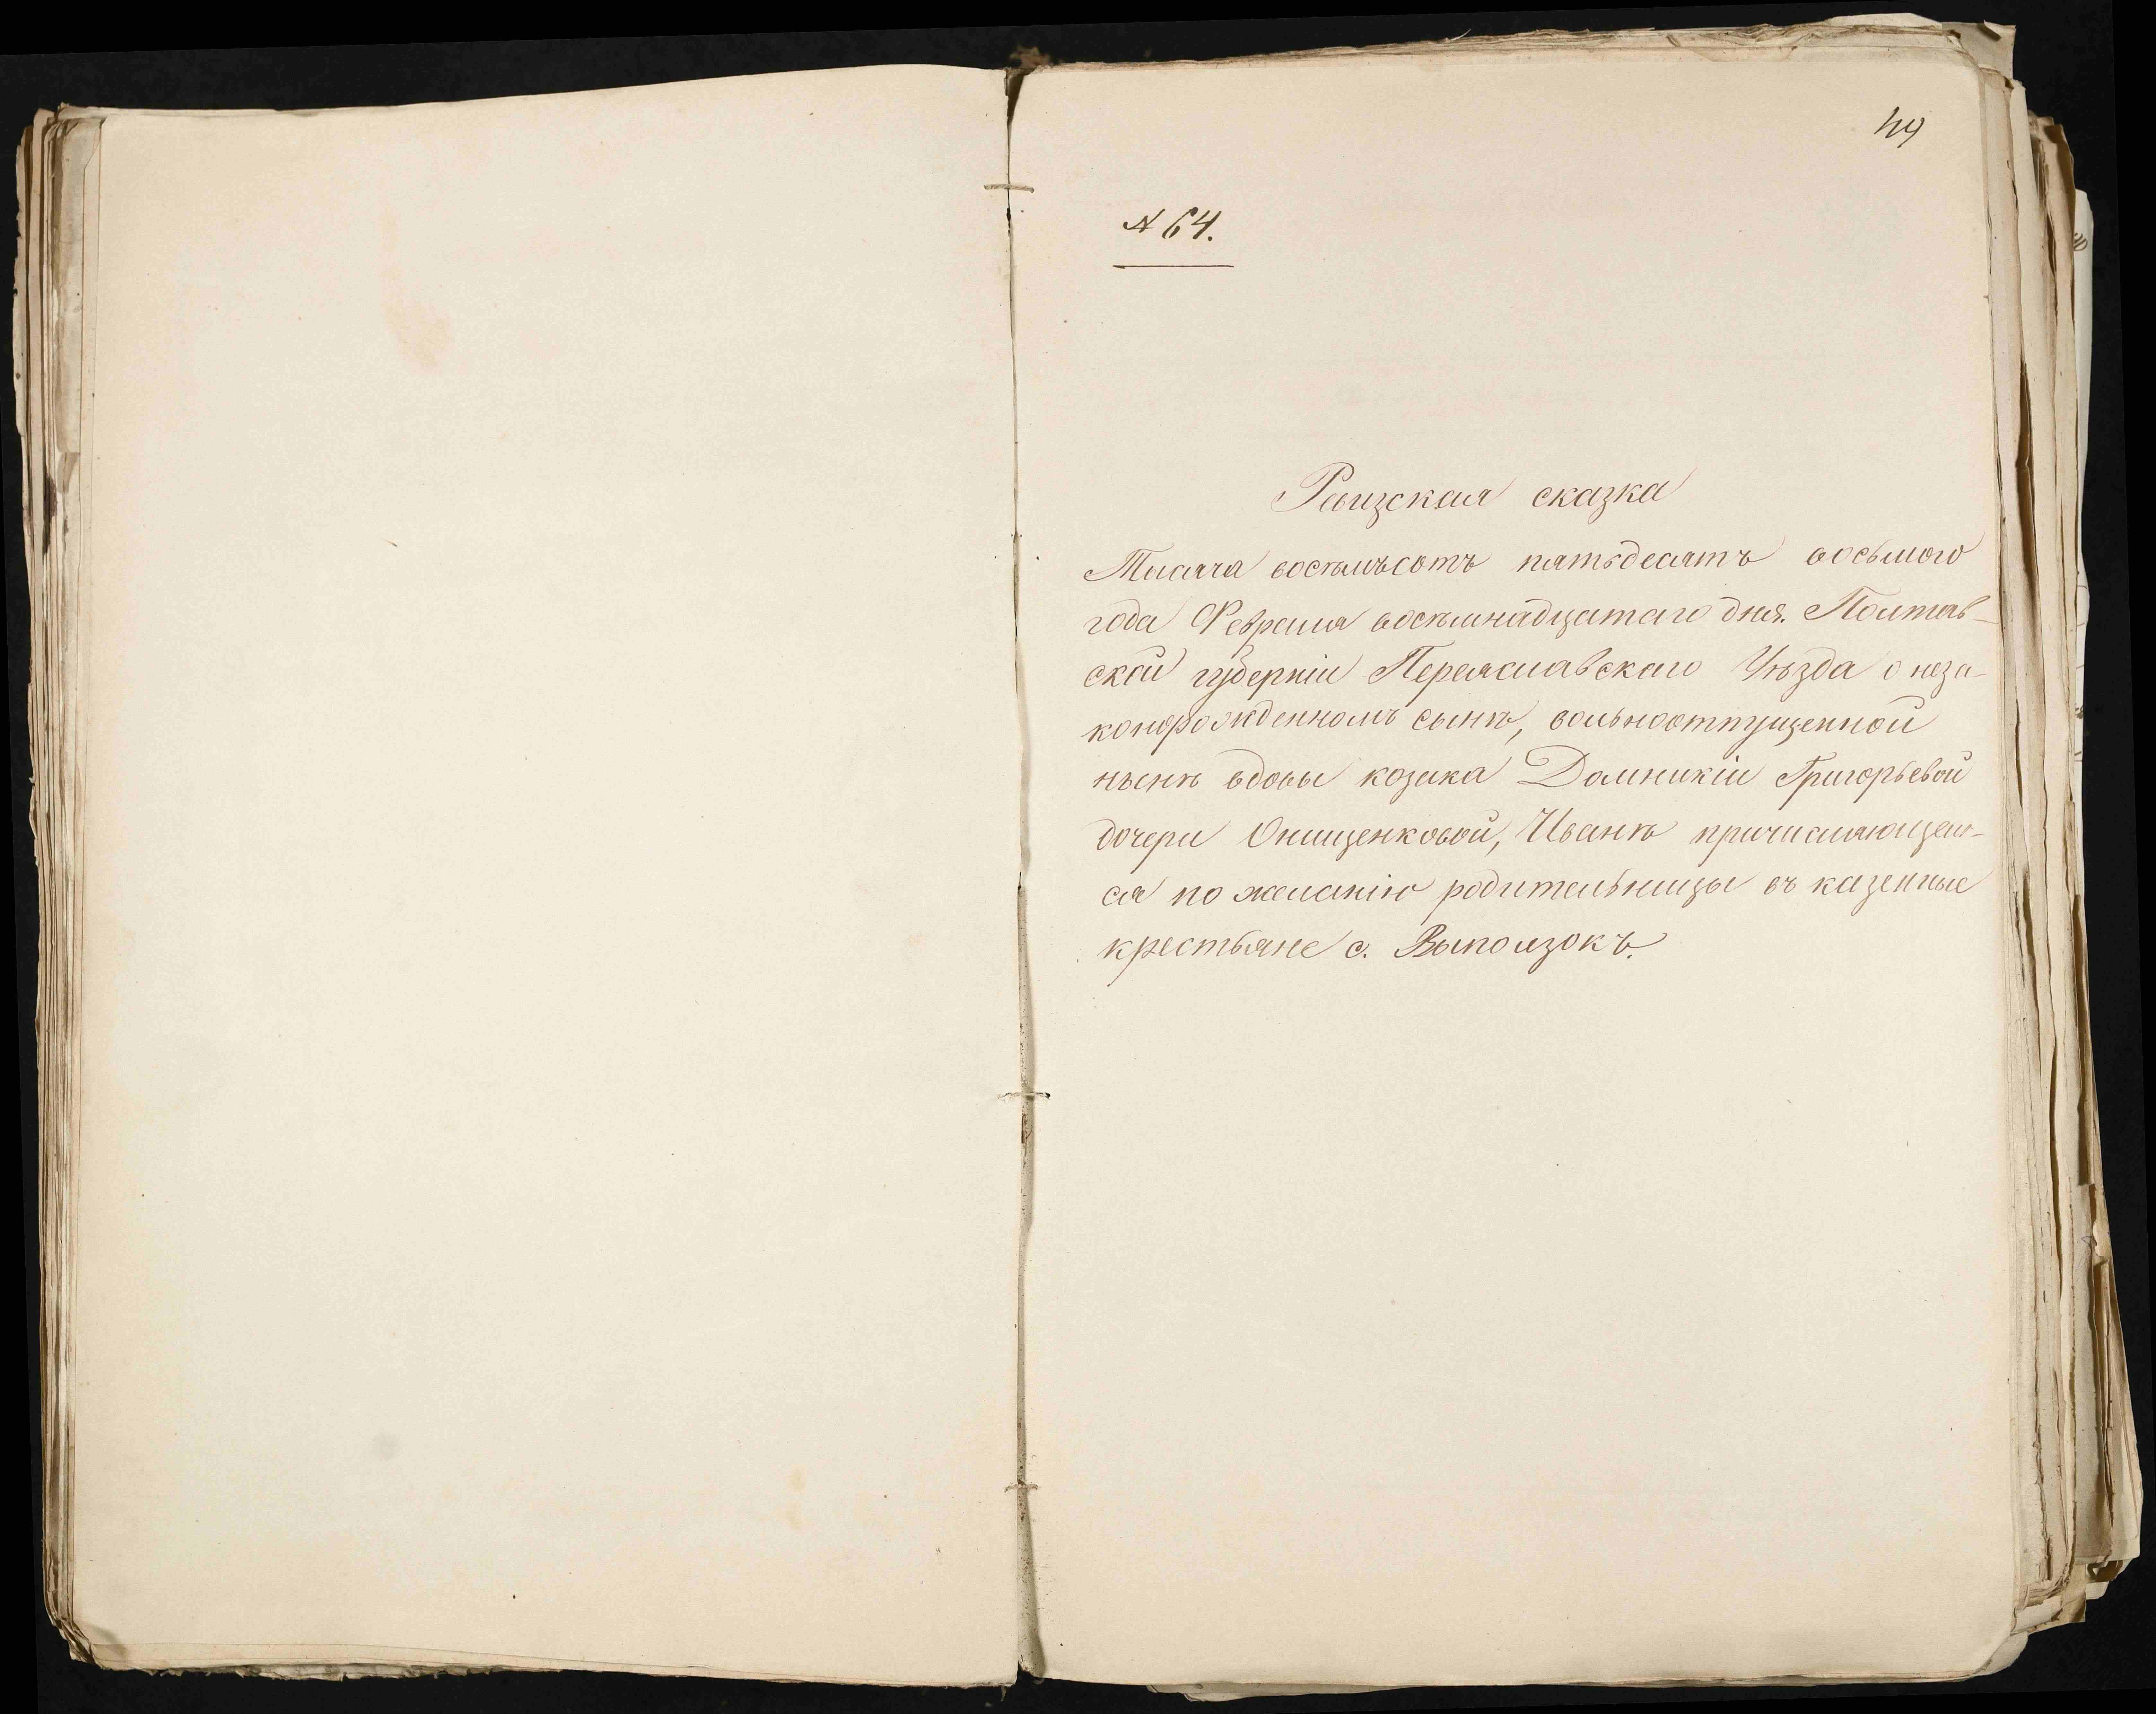 49
№ 64.
Ревизская сказка
Тысяча восемьсотъ пятьдесятъ восьмого
года Февраля восемнадцатаго дня. Полтав-
ской губерніи Переяславскаго Уѣзда о неза-
конорожденномъ сынѣ, вольноотпущенной
нынѣ вдовы козака Домникіи Григорьевой
дочери Онищенковой, Иванѣ причисляющем-
ся по желанію родительницы въ казенные
крестьяне с. Выползокъ.